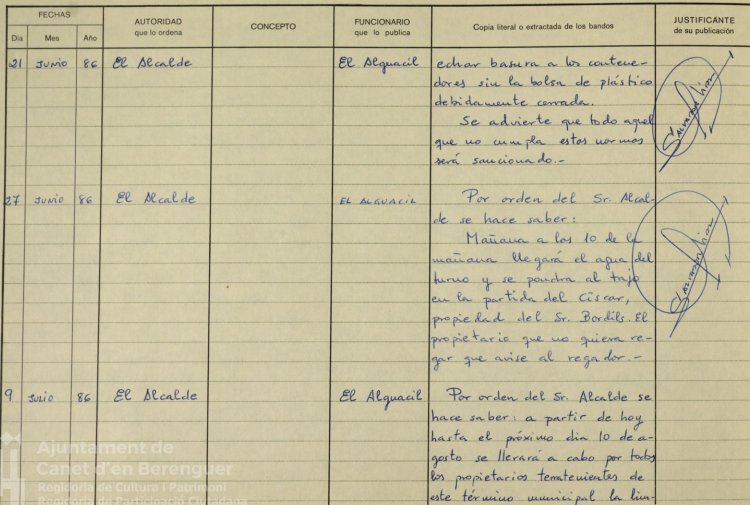 FECHAS
Día Mes Año
AUTORIDAD
que lo ordena
CONCEPTO
FUNCIONARIO
que lo publica
Copia literal o extractada de los bandos
JUSTIFICANTE
de su publicación
21 JUNIO 86 El Alcalde El Alguacil echar basura a los contene-
dores sin la bolsa de plástico
debidamente cerrada.
Se advierte que todo aquel
que no cumpla estas normas
será sancionado.-
27 JUNIO 86 El Alcalde EL ALGUACIL Por orden del Sr. Alcal-
de se hace saber:
Mañana a las 10 de la
mañana llegará el agua del
turno y se pondra al tajo
en la partida del Ciscar,
propiedad del Sr. Bordils. El
propietario que no quiera re-
gar que avise al regador.-
9 JULIO 86 El Alcalde El Alguacil Por orden del Sr. Alcalde se
hace saber: a partir de hoy
hasta el próximo dia 10 de a-
gosto se llevará a cabo por todos
los propietarios terratenientes de
este término municipal la lim-
Ajuntament de
Canet d'en Berenguer
Regidoria de Cultura i Patrimoni
Regidoria de Participació Ciutadana